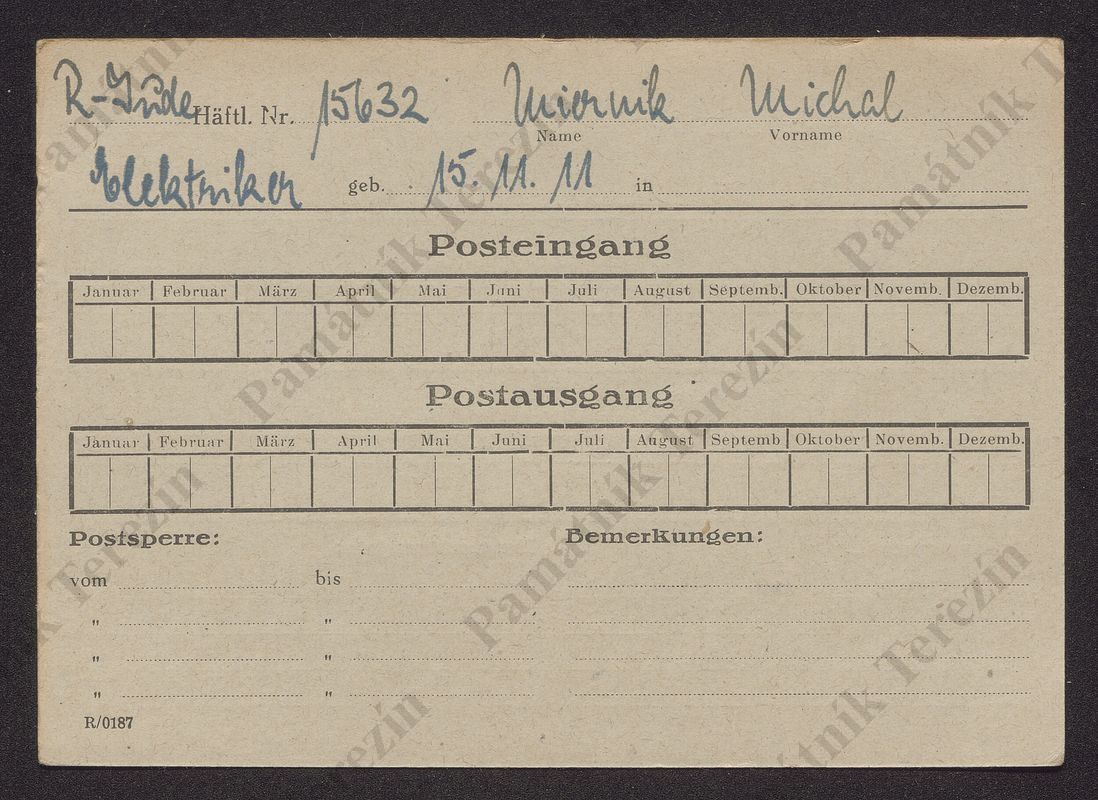 R-Jude Häftl. Nr. 15632 Miernik Michal
Name Vorname
Elektriker geb. 15. 11. 11 in
Posteingang
Januar Februar März April Mai Juni Juli August Septemb. Oktober Novemb. Dezemb.
Postausgang
Januar Februar März April Mai Juni Juli August Septemb Oktober Novemb. Dezemb.
Postsperre: Bemerkungen:
vom bis
" "
" "
" "
R/0187
Památník Terezín